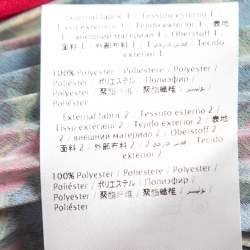 External fabric 1 / Tessuto esterno 1
/ Tissu extérieur 1 / Tejido exterior 1 / 表地
1 / внешний материал 1 / Oberstoff 1
面料 1 / 外部布料 1 / قماش خارجي 1 / Tecido
exterior 1
100% Polyester / Poliestere / Polyester /
Poliéster / ポリエステル / Полиэфир /
Polyester / 聚酯纖維 / 聚酯纖維 / بوليستر /
Poliéster
External fabric 2 / Tessuto esterno 2 /
Tissu extérieur 2 / Tejido exterior 2 / 表地
2 / внешний материал 2 / Oberstoff 2
面料 2 / 外部布料 2 / قماش خارجي 2 / Tecido
exterior 2
100% Polyester / Poliestere / Polyester /
Poliéster / ポリエステル / Полиэфир /
Polyester / 聚酯纖維 / 聚酯纖維 / بوليستر /
Poliéster